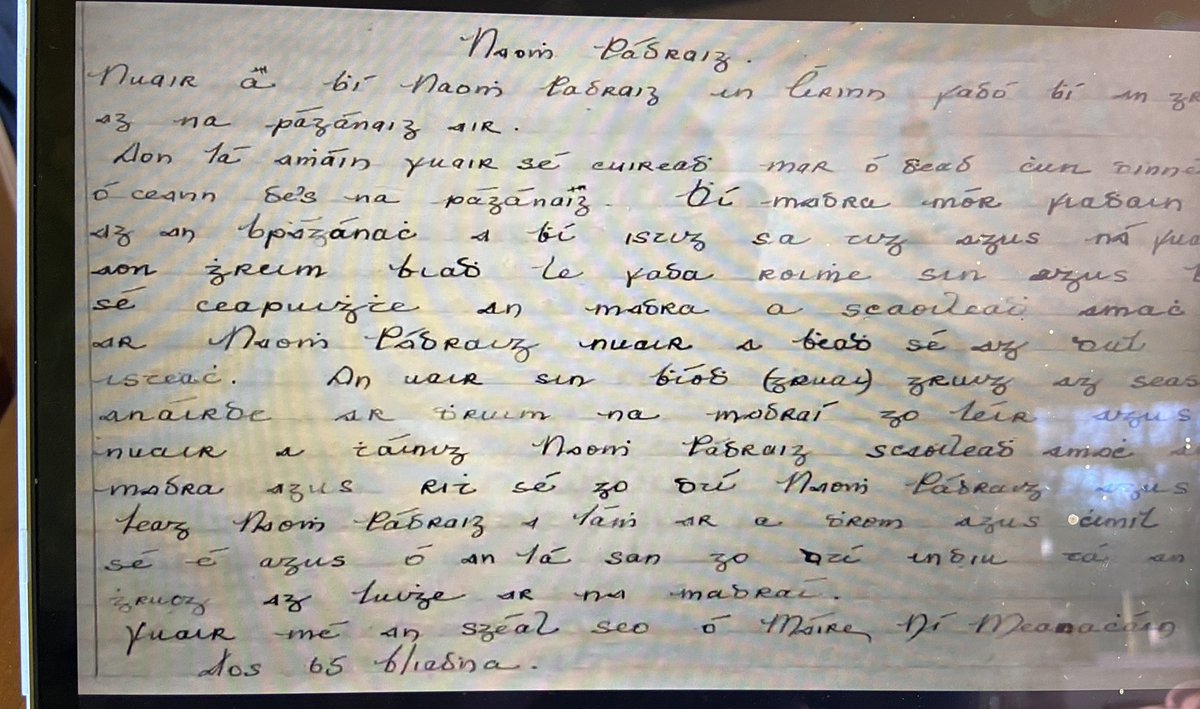 Naoṁ Pádraig.
Nuair a ḃí Naoṁ Padraig in Éirinn fadó bí an
ag na págánaig air.
Aon lá aṁáin fuair sé cuireaḋ mar ó ḋeaḋ ċun
ó ceann de's na págánaiġ. Bí madra mór fiaḋain
ag an bpágánaċ a bí istig sa tig agus ná
aon ġreim biaḋ le fada roiṁe sin agus
sé ceapuiġṫe an madra a scaoileaḋ amaċ
ar Naoṁ Pádraig nuair a ḃeaḋ sé ag dul
isteaċ. An uair sin bíoḋ (gruai) gruig ag seas
anáirde ar ḋruim na madraí go léir agus
nuair a ṫáinig Naoṁ Pádraig scaoileaḋ amaċ
madra agus riṫ sé go dtí Naoṁ Pádraig agus
leag Naoṁ Pádraig a láṁ ar a ḋrom agus ċimil
sé é agus ó an lá san go dtí indiu tá an
ġruaig ag luiġe ar na madraí.
Fuair mé an sgéal seo ó Máire Ní Meanaċáin
Aos 65 bliaḋna.